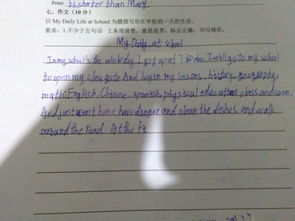 Peter is shorter than Mary.
七、作文（10分）
以 My Daily Life at School 为题描写你在学校的一天的生活。
要求：1.不少于五句话 2.条理清楚，意思连贯，标点正确，书写规范。
My Daily at school
In my school's the whole day. I got up at 7 to my school
to open my class gate And began my lessons, history, geography
math English, Chinese, spanish, physical education class and soon.
And just went home have dinner and clean the dishes and walk
around the road. At the